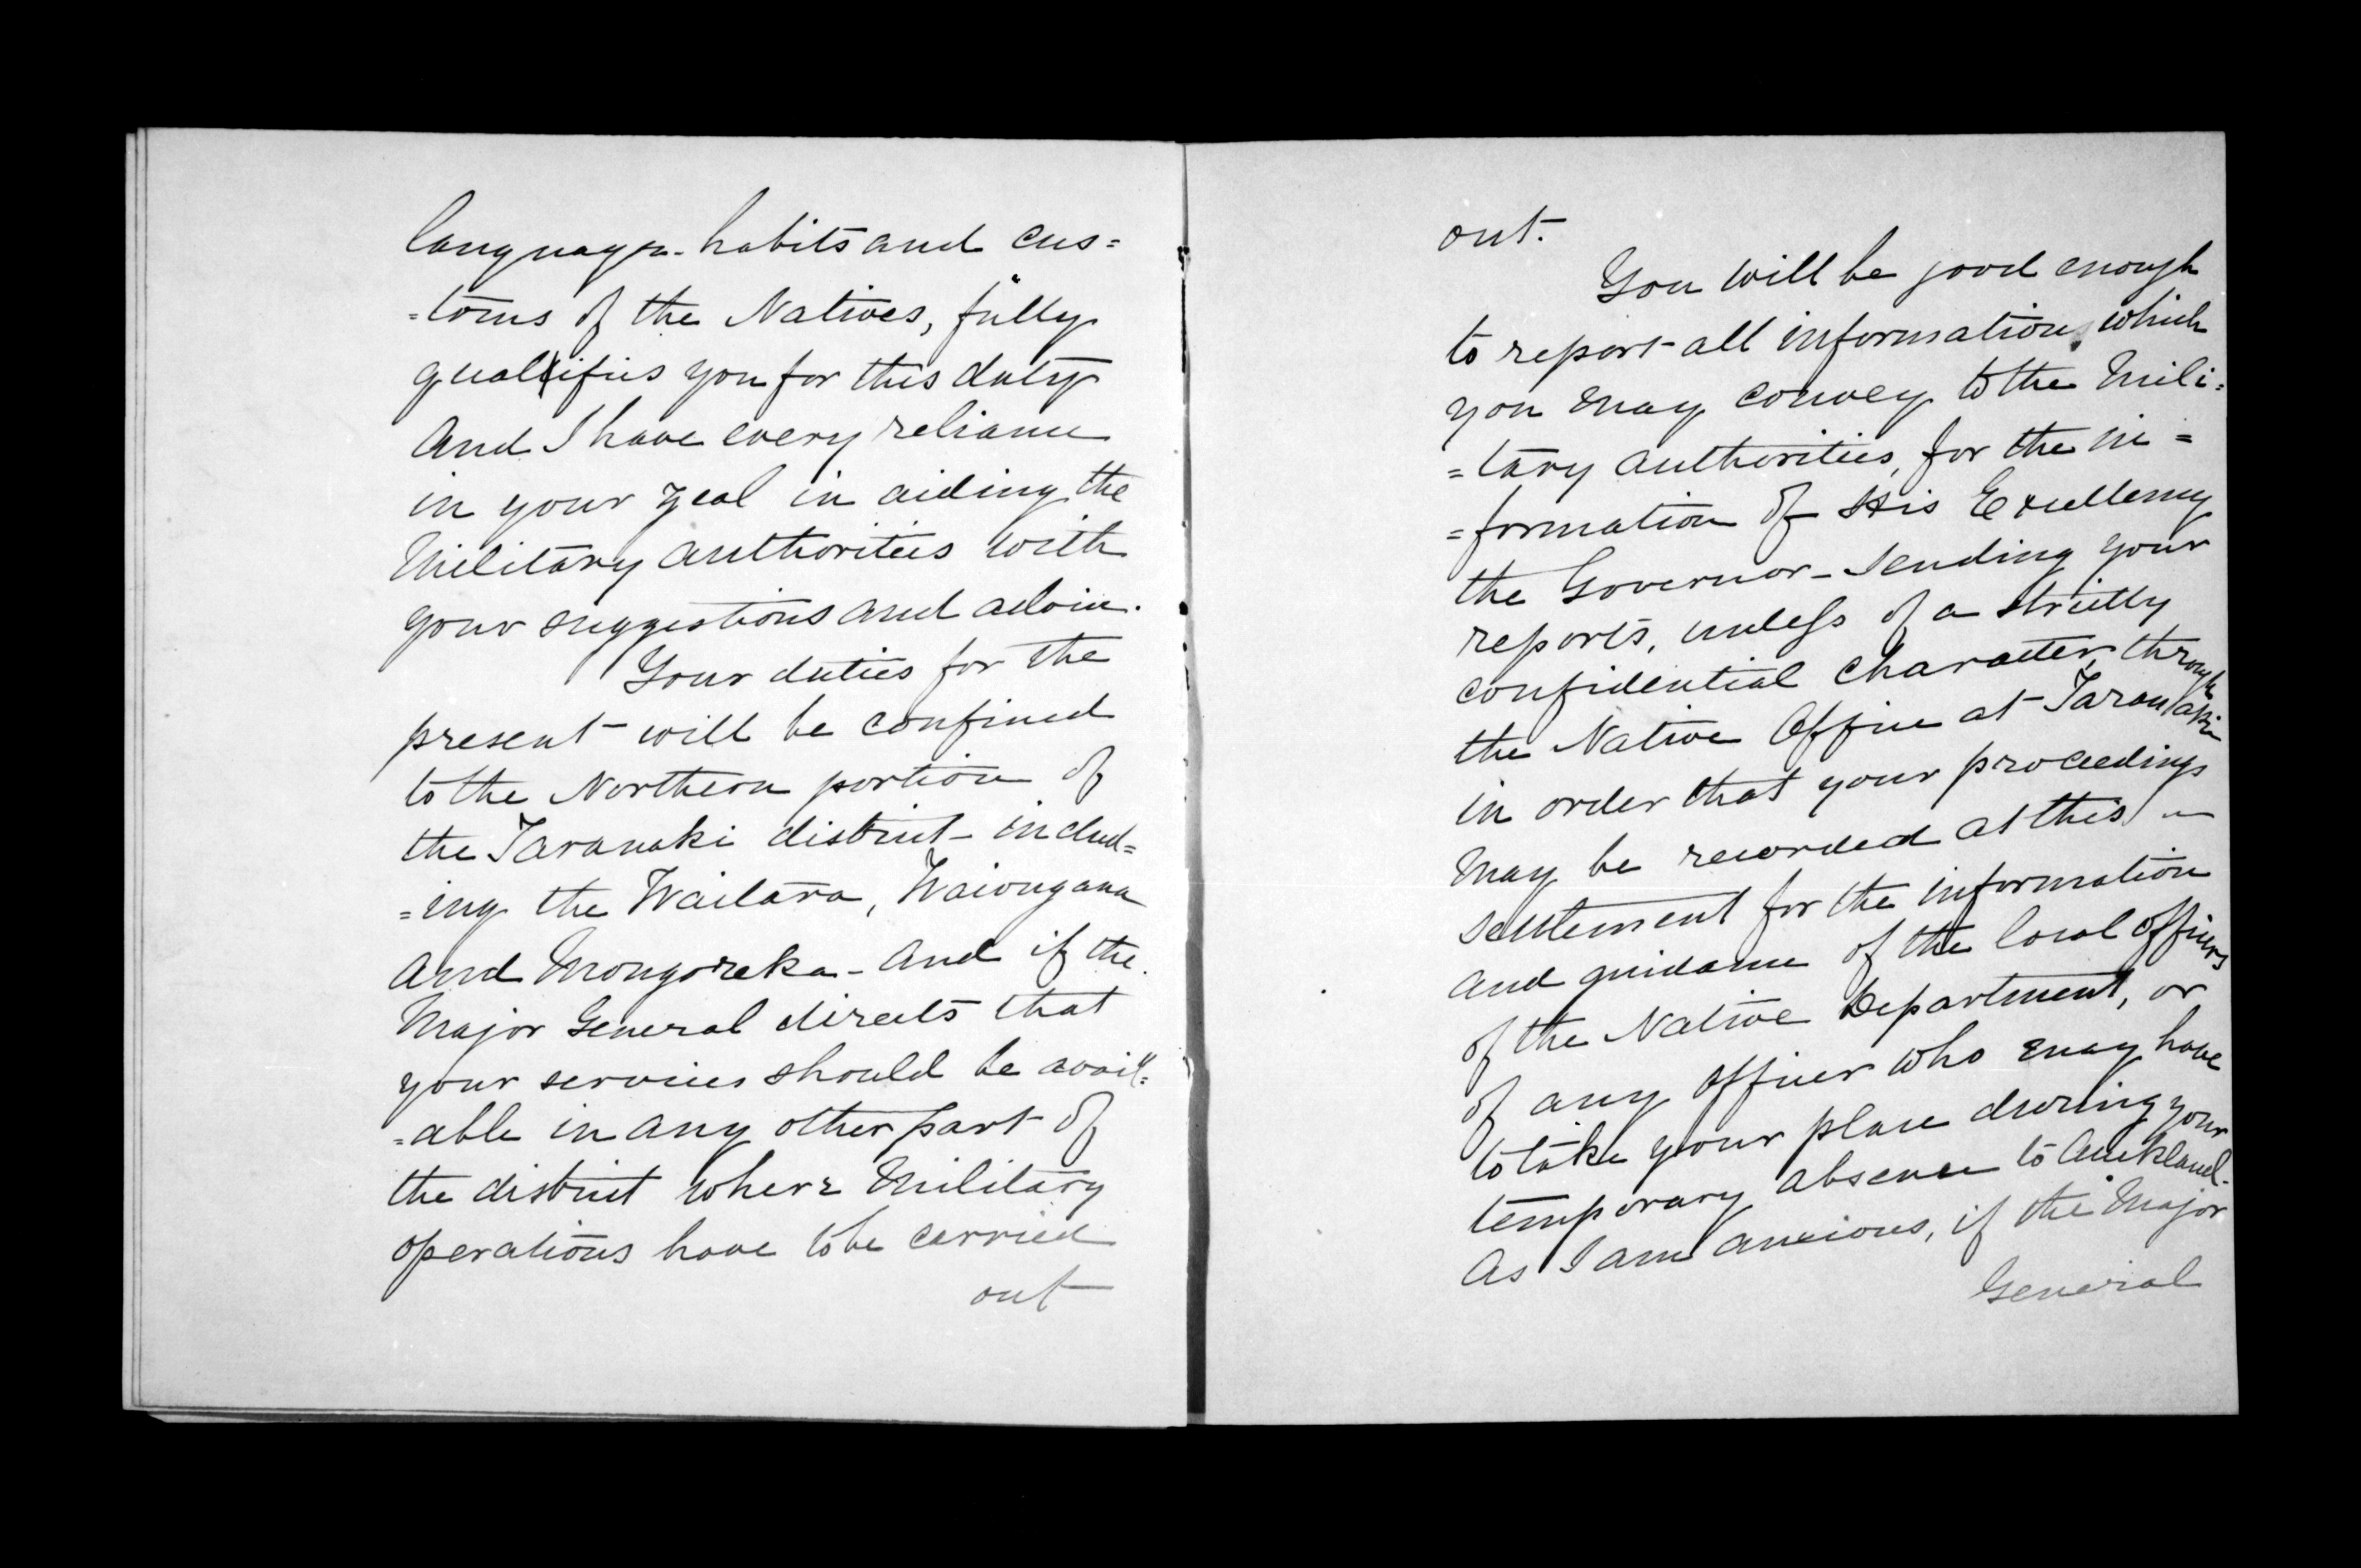 language. habits and cus=
=toms of the Natives, fully
qualifies you for this duty
and I have every reliance
in your zeal in aiding the
Military authorities with
your suggestions and advice.
Your duties for the
present will be confined
to the Northern portion of
the Taranaki district - includ=
=ing the Waitara, Waiongana
and Mongoreka - and if the
Major General directs that
your services should be avail=
=able in any other part of
the district where Military
operations have to be carried
out
out.
You will be good enough
to report all information which
you may convey to the Mili=
=tary authorities, for the in=
=formation of His Excellency
the Governor - sending your
reports, unless of a strictly
confidential character, through
the Native Office at Taranaki
in order that your proceedings
may be recorded at this
settlement for the information
and guidance of the local officers
of the Native Department, or
of any officer who may have
to take your place during your
temporary absence to Auckland.
As I am anxious, if the Major
General